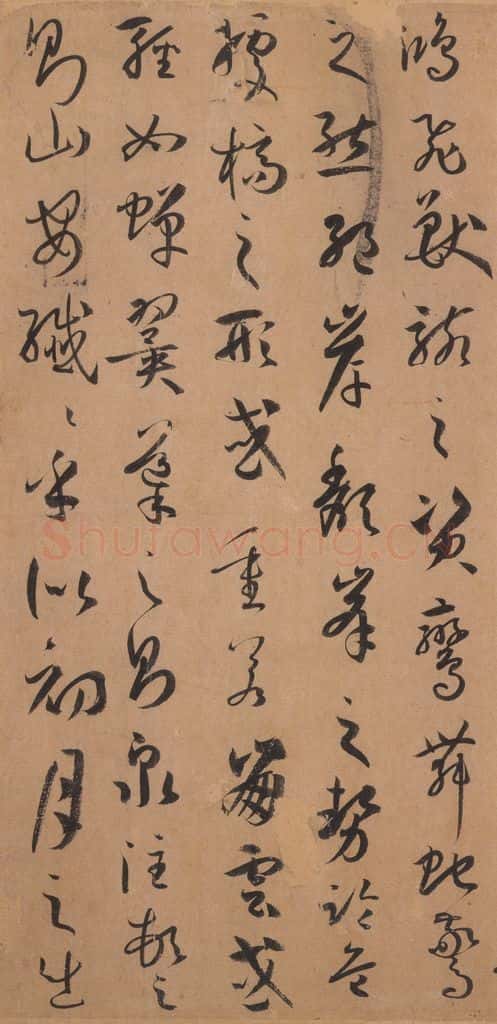 鴻飛獸駭之資鸞舞虵驚
之態絕岸頹峯之勢臨危
據槁之形或重若崩雲或
輕如蟬翼導之則泉注頓之
則山安纖〻乎似初月之出
Shufawang.cn